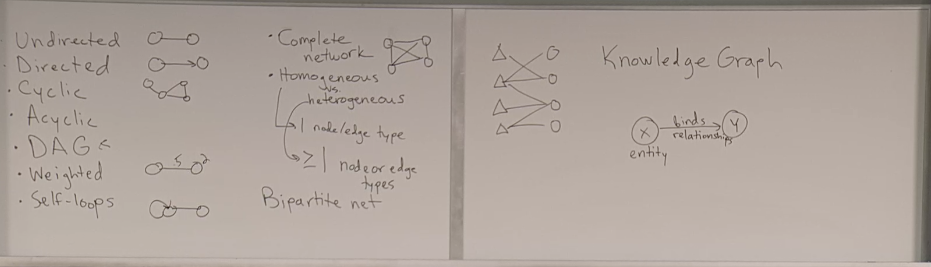 Undirected
· Directed
· Cyclic
· Acyclic
· DAGs
· Weighted 5 2
· Self-loops
· Complete
network
· Homogeneous
vs.
heterogeneous
1 node/edge type
≥1 node or edge
types
Bipartite net
Knowledge Graph
X binds Y
relationships
entity